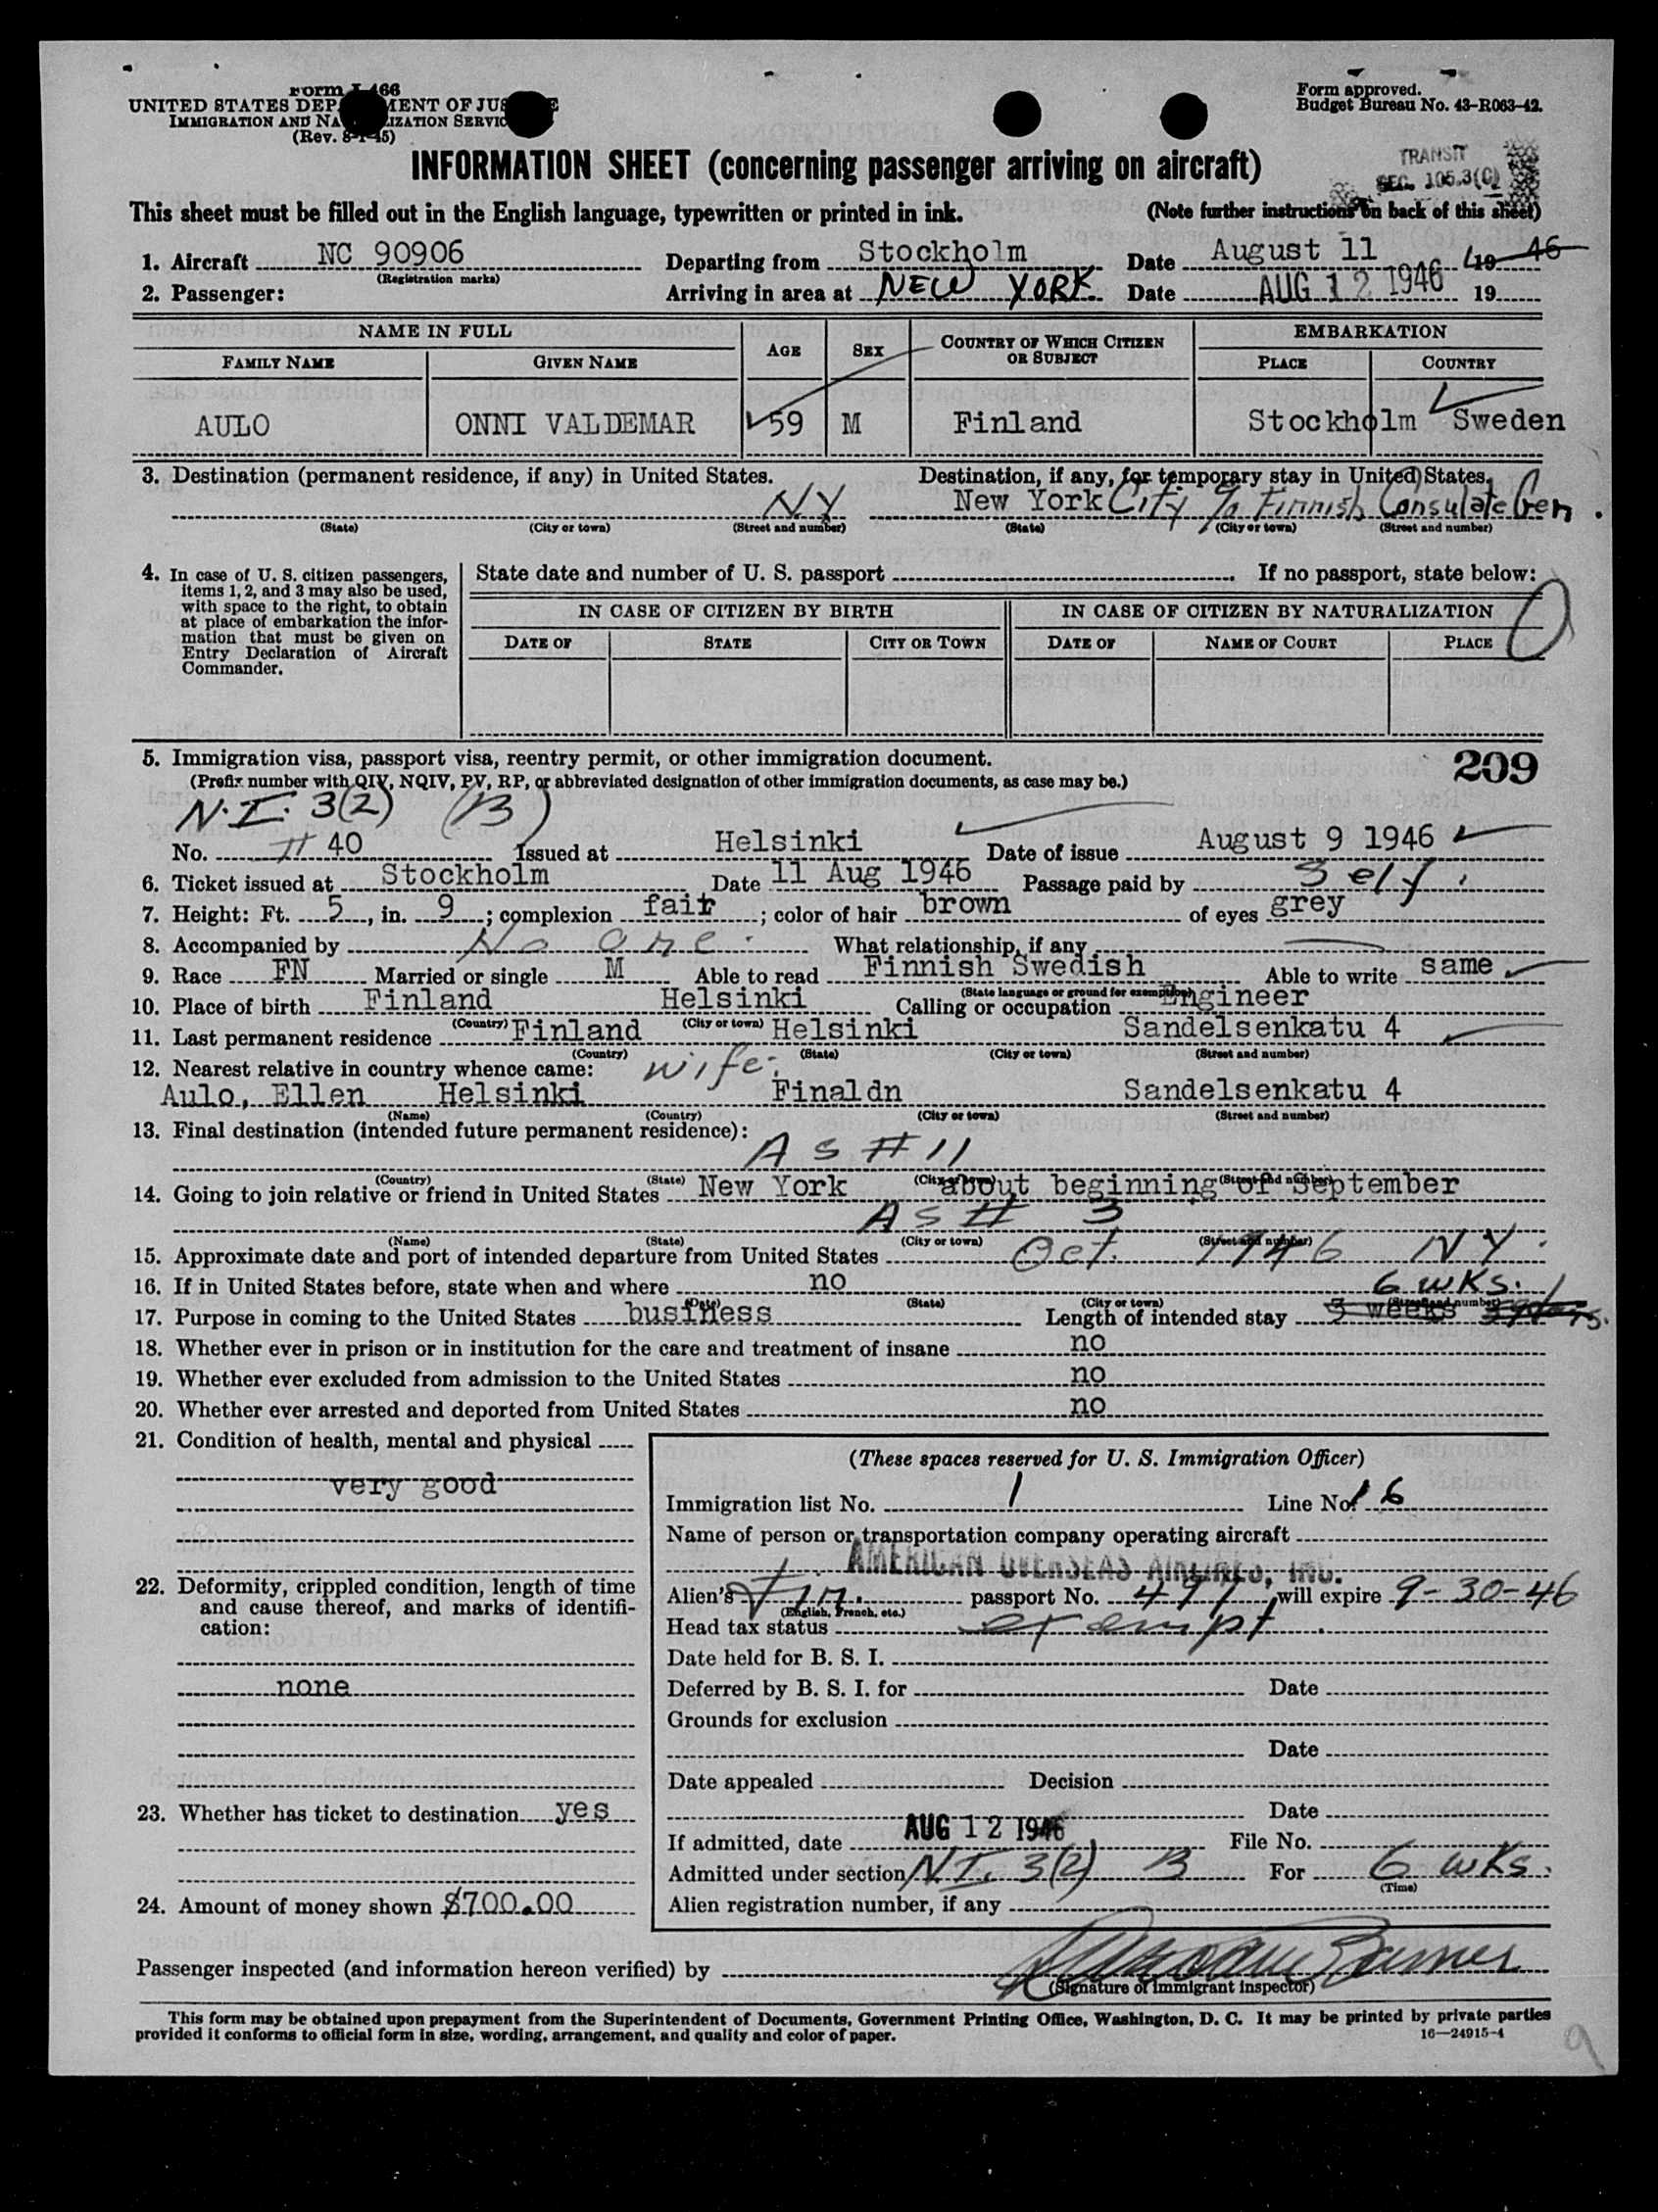 Form I-466
UNITED STATES DEPARTMENT OF JUSTICE
IMMIGRATION AND NATURALIZATION SERVICE
(Rev. 8-1-45)
Form approved.
Budget Bureau No. 43-R063-42.
INFORMATION SHEET (concerning passenger arriving on aircraft)
TRANSIT
SEC. 105.3(C)
This sheet must be filled out in the English language, typewritten or printed in ink. (Note further instructions on back of this sheet)
1. Aircraft NC 90906 Departing from Stockholm Date August 11 19 46
(Registration marks)
2. Passenger: Arriving in area at NEW YORK Date AUG 12 1946 19
NAME IN FULL AGE SEX COUNTRY OF WHICH CITIZEN OR SUBJECT EMBARKATION
FAMILY NAME GIVEN NAME PLACE COUNTRY
AULO ONNI VALDEMAR 59 M Finland Stockholm Sweden
3. Destination (permanent residence, if any) in United States. Destination, if any, for temporary stay in United States.
NY New York City c/o Finnish Consulate Gen.
(State) (City or town) (Street and number) (State) (City or town) (Street and number)
4. In case of U. S. citizen passengers, items 1, 2, and 3 may also be used, with space to the right, to obtain at place of embarkation the information that must be given on Entry Declaration of Aircraft Commander.
State date and number of U. S. passport . If no passport, state below:
IN CASE OF CITIZEN BY BIRTH IN CASE OF CITIZEN BY NATURALIZATION
DATE OF STATE CITY OR TOWN DATE OF NAME OF COURT PLACE
0
5. Immigration visa, passport visa, reentry permit, or other immigration document.
209
(Prefix number with QIV, NQIV, PV, RP, or abbreviated designation of other immigration documents, as case may be.)
N.I. 3(2) (B)
No. # 40 Issued at Helsinki Date of issue August 9 1946
6. Ticket issued at Stockholm Date 11 Aug 1946 Passage paid by Self.
7. Height: Ft. 5, in. 9; complexion fair; color of hair brown of eyes grey
8. Accompanied by No one. What relationship, if any —
9. Race FN Married or single M Able to read Finnish Swedish Able to write same
(State language or ground for exemption)
10. Place of birth Finland Helsinki Calling or occupation Engineer
(Country) (City or town)
11. Last permanent residence Finland Helsinki Sandelsenkatu 4
(Country) (State) (City or town) (Street and number)
12. Nearest relative in country whence came: wife:
Aulo, Ellen Helsinki Finaldn Sandelsenkatu 4
(Name) (Country) (City or town) (Street and number)
13. Final destination (intended future permanent residence):
AS #11
(Country) (State) (City or town) (Street and number)
14. Going to join relative or friend in United States New York about beginning of September
AS # 3
(Name) (State) (City or town) (Street and number)
15. Approximate date and port of intended departure from United States Oct. 1946 NY.
16. If in United States before, state when and where no
6 wks.
(Date) (State) (City or town) (Street and number)
17. Purpose in coming to the United States business Length of intended stay 3 weeks
18. Whether ever in prison or in institution for the care and treatment of insane no
19. Whether ever excluded from admission to the United States no
20. Whether ever arrested and deported from United States no
21. Condition of health, mental and physical
very good
22. Deformity, crippled condition, length of time and cause thereof, and marks of identification:
none
23. Whether has ticket to destination yes
24. Amount of money shown $700.00
(These spaces reserved for U. S. Immigration Officer)
Immigration list No. 1 Line No. 16
Name of person or transportation company operating aircraft
AMERICAN OVERSEAS AIRLINES, INC.
Alien's Fin. passport No. 497 will expire 9-30-46
(English, French, etc.)
Head tax status exempt
Date held for B. S. I.
Deferred by B. S. I. for Date
Grounds for exclusion
Date
Date appealed Decision
Date
If admitted, date AUG 12 1946 File No.
Admitted under section N.I. 3(2) B For 6 wks.
(Time)
Alien registration number, if any
Passenger inspected (and information hereon verified) by
(Signature of immigrant inspector)
This form may be obtained upon prepayment from the Superintendent of Documents, Government Printing Office, Washington, D. C. It may be printed by private parties
provided it conforms to official form in size, wording, arrangement, and quality and color of paper. 16—24915-4
9